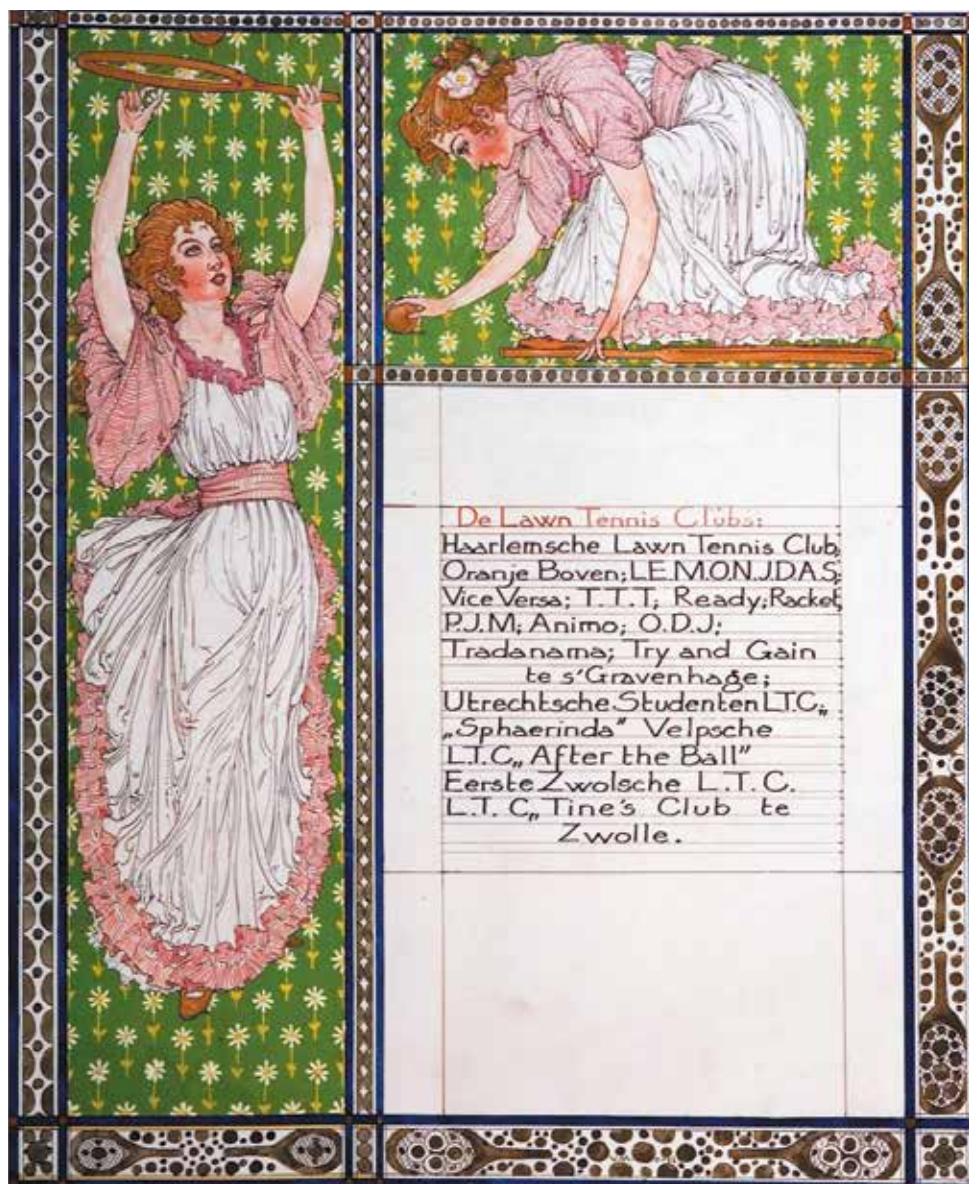 De Lawn Tennis Clubs:
Haarlemsche Lawn Tennis Club;
Oranje Boven; L.E.M.O.N.J.D.A.S;
Vice Versa; T.T.T; Ready; Racket;
P.J.M; Animo; O.D.J;
Tradanama; Try and Gain
te s'Gravenhage;
Utrechtsche Studenten L.T.C„
„Sphaerinda" Velpsche
L.T.C„ After the Ball"
Eerste Zwolsche L.T.C.
L.T.C„ Tine's Club te
Zwolle.